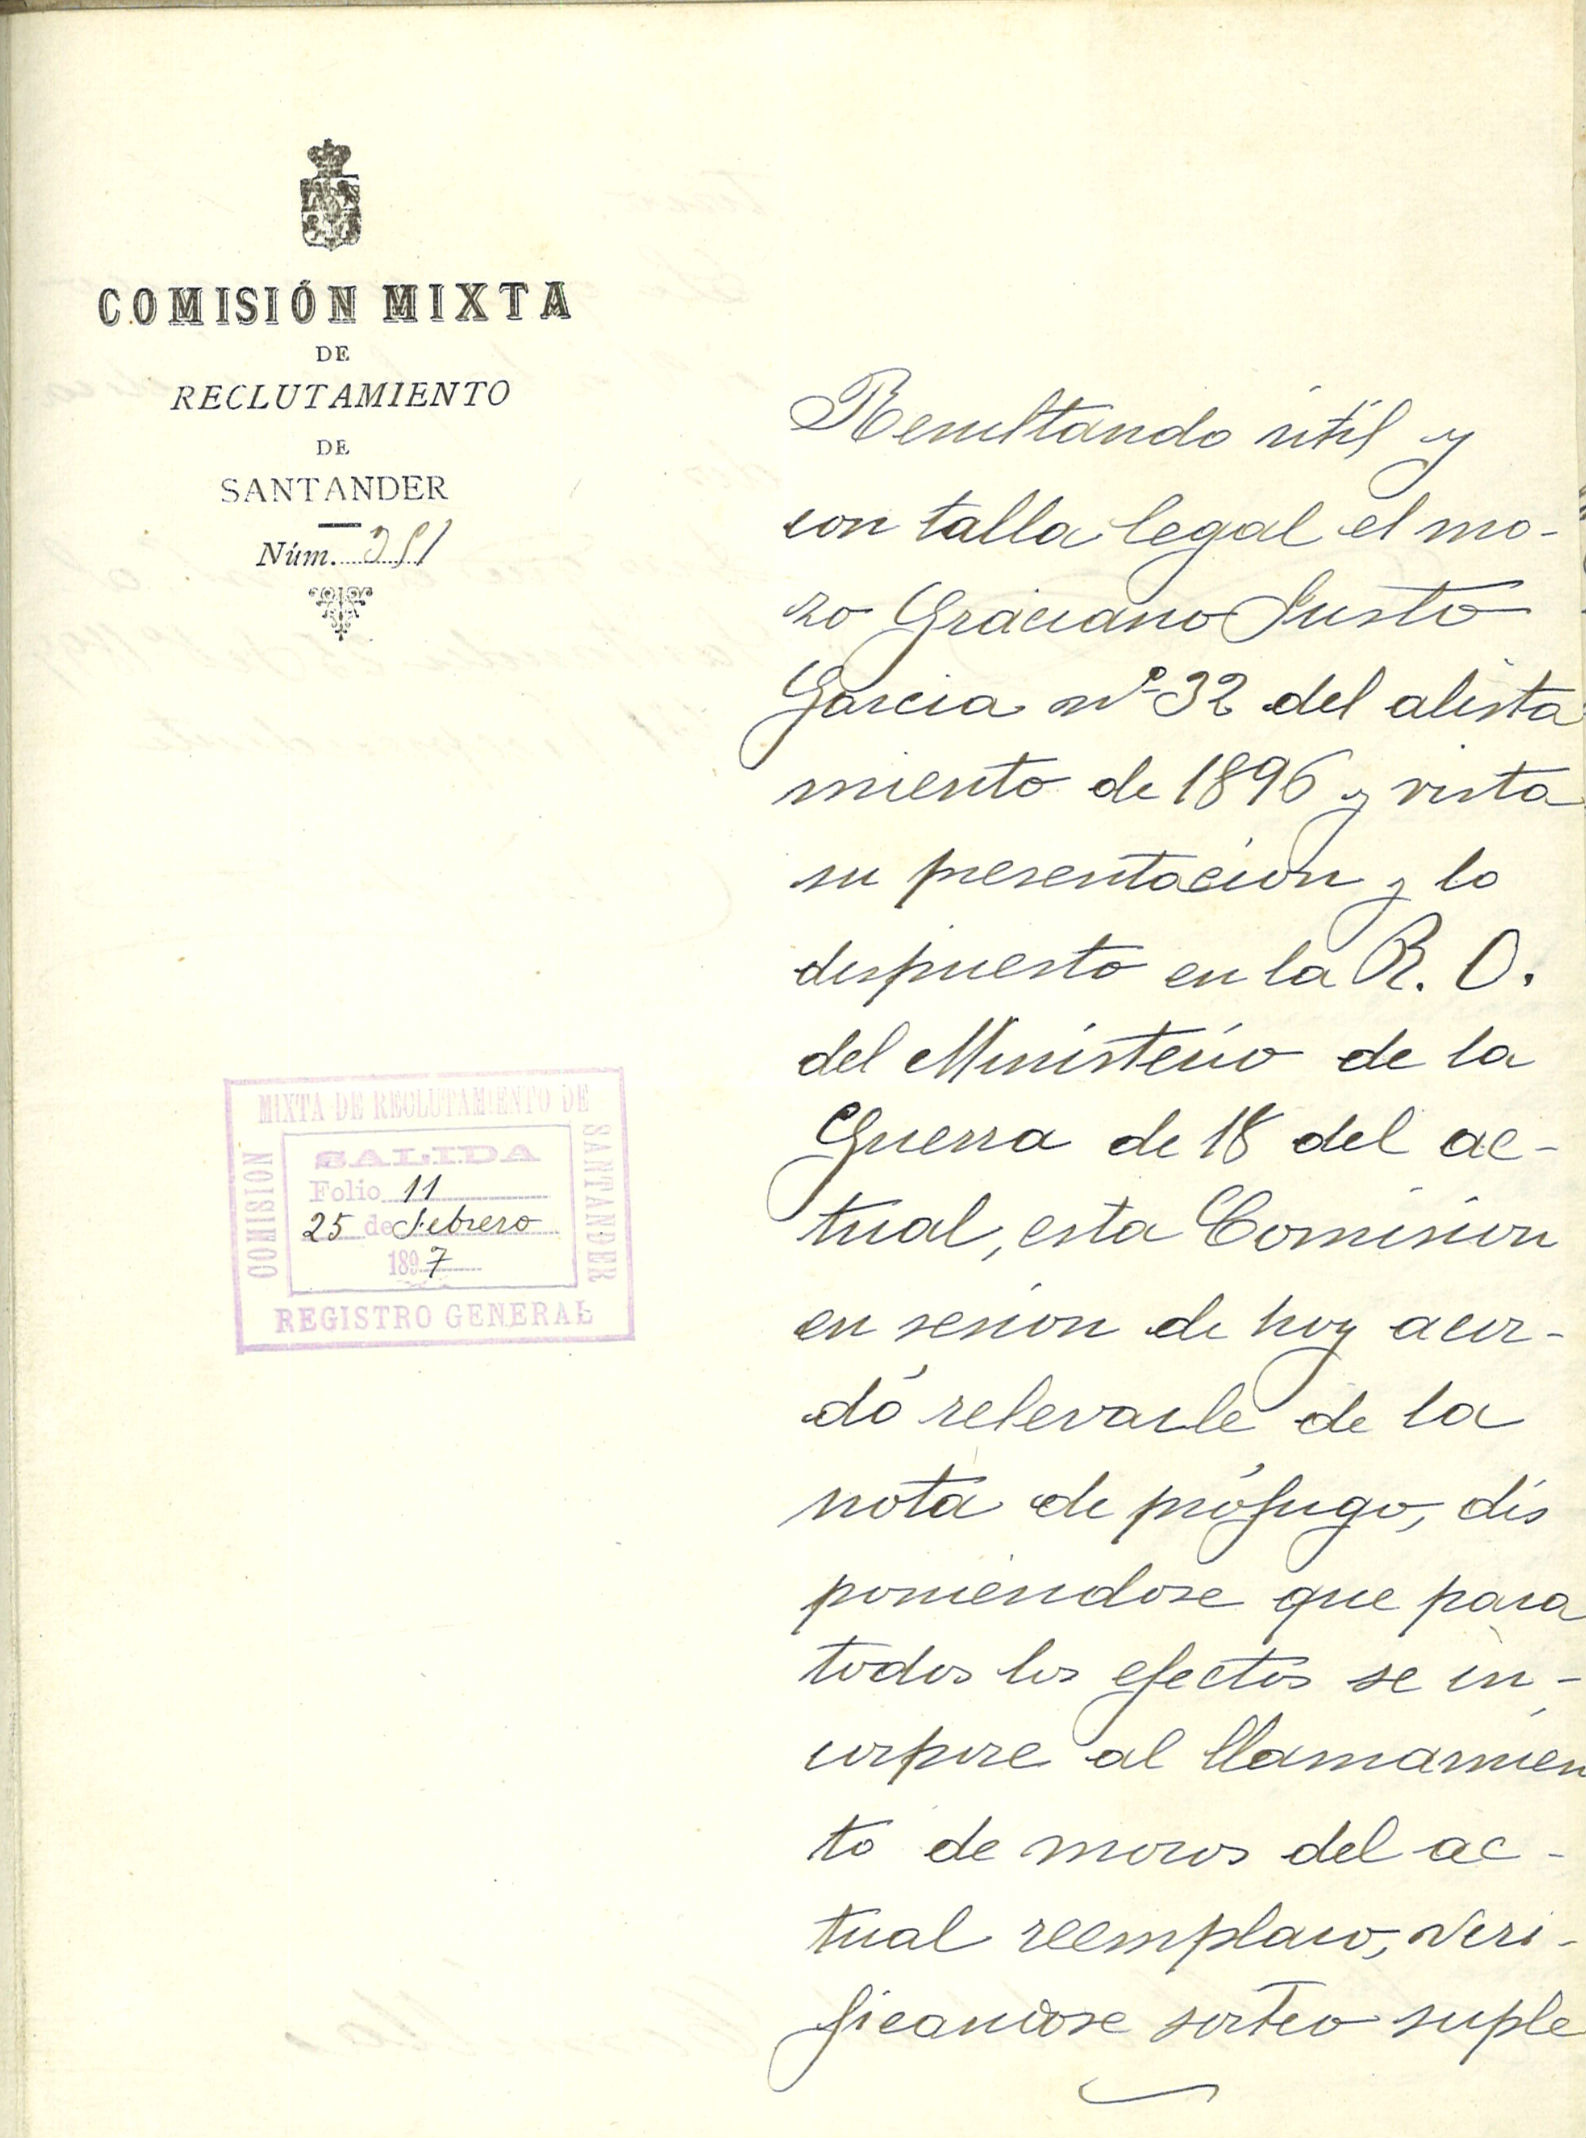 COMISIÓN MIXTA
DE
RECLUTAMIENTO
DE
SANTANDER
Núm.
MIXTA DE RECLUTAMIENTO DE
SANTANDER
COMISION
SALIDA
Folio 11
25 de Febrero
1897
REGISTRO GENERAL
Resultando útil y
con talla legal el mo-
zo Graciano Justo
Garcia nº 32 del alista
miento de 1896 y vista
su presentacion y lo
dispuesto en la R. O.
del Ministerio de la
Guerra de 18 del ac-
tual, esta Comision
en sesion de hoy acor-
dó relevarle de la
nota de prófugo, dis
poniendose que para
todos los efectos se in-
corpore al llamamien
to de mozos del ac-
tual reemplazo, veri-
ficandose sorteo suple